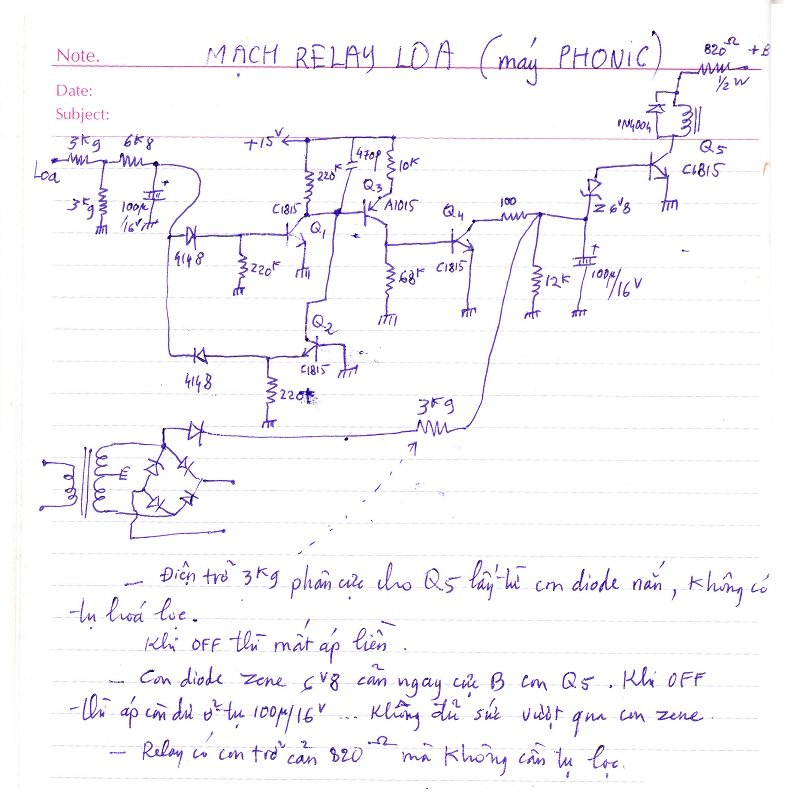 Note. MẠCH RELAY LOA (máy PHONIC)
Date:
Subject:
820Ω +B
½ W
1N4004
Q5
C1815
3K9 6K8
Loa
3K9
100µ
/16V
+15V
220K
470p
10K
Q3
A1015
C1815
Q1
Q4
100
Z 6V8
4148
220K
68K
C1815
12K
100µ/16V
Q2
C1815
4148
220K
3K9
E
– Điện trở 3K9 phân cực cho Q5 lấy từ con diode nắn, không có
tụ hoá lọc.
Khi OFF thì mất áp liền.
– Con diode zene 6V8 cản ngay cực B con Q5. Khi OFF
thì áp còn dư ở tụ 100µ/16V ... không đủ sức vượt qua con zene.
– Relay có con trở cản 820Ω mà không cần tụ lọc.